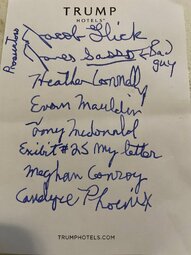 TRUMP
HOTELS
Prosecutors
Jacob Glick
James Sasso
Bad
guy
Heather Connelly
Evan Mauldin
Tony McDonald
Exibit #25 My letter
Meghan Conroy
Candyce Phoenix
TRUMPHOTELS.COM